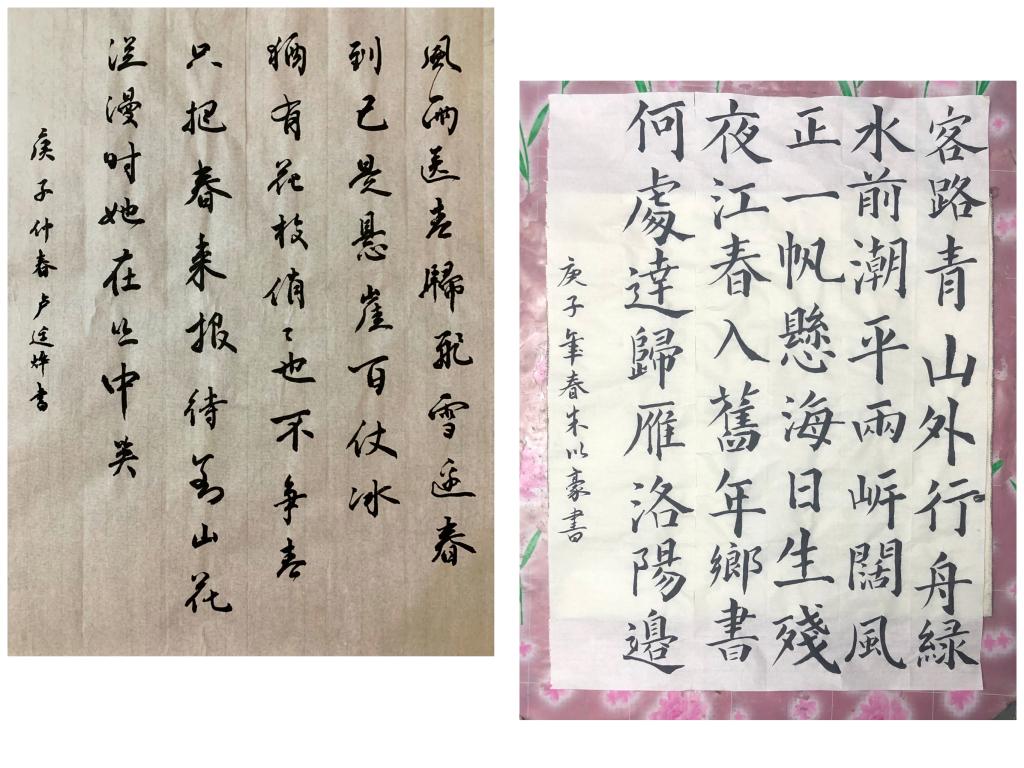 風雨送春歸飛雪迎春
到已是悬崖百仗冰
猶有花枝俏〻也不争春
只把春来报待到山花
漫时她在丛中笑
庚子仲春卢書
客路青山外行舟緑
水前潮平兩岍闊風
正一帆懸海日生殘
夜江春入舊年鄉書
何處達歸雁洛陽邊
庚子年春朱以豪書